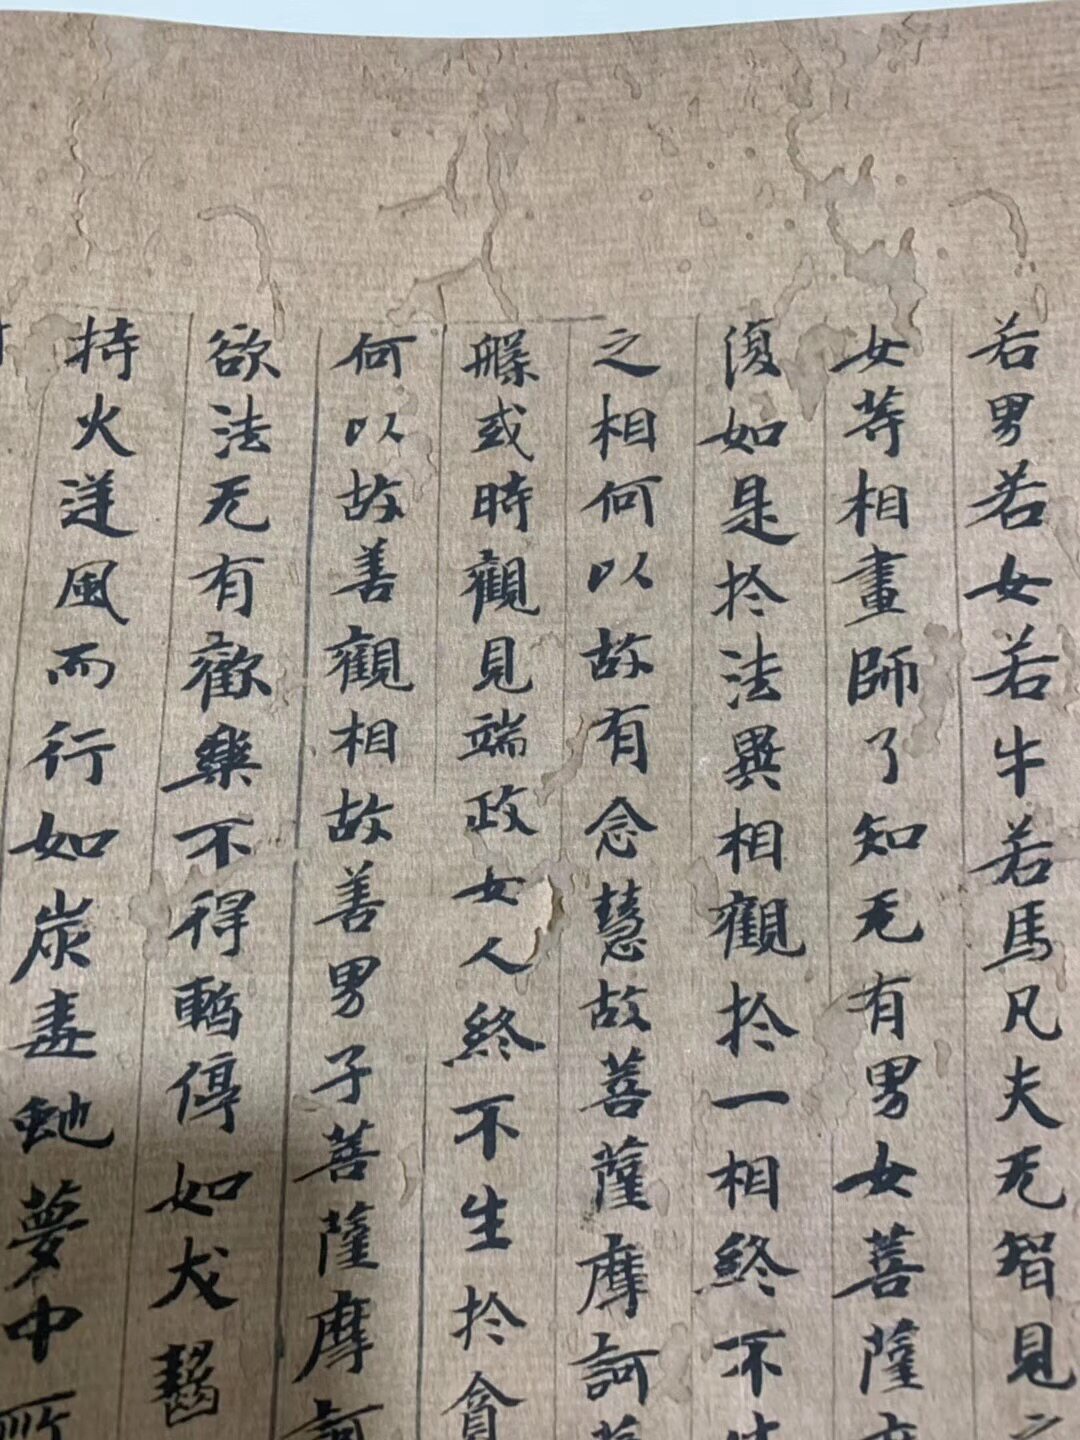 若男若女若牛若馬凡夫无智見之
女等相畫師了知无有男女菩薩
復如是扵法異相觀扵一相終不生
之相何以故有念慧故菩薩摩訶菩
槃或時觀見端政女人終不生扵貪
何以故善觀相故善男子菩薩摩訶
欲法无有歡樂不得暫停如犬齧
持火逆風而行如炭毒虵夢中所